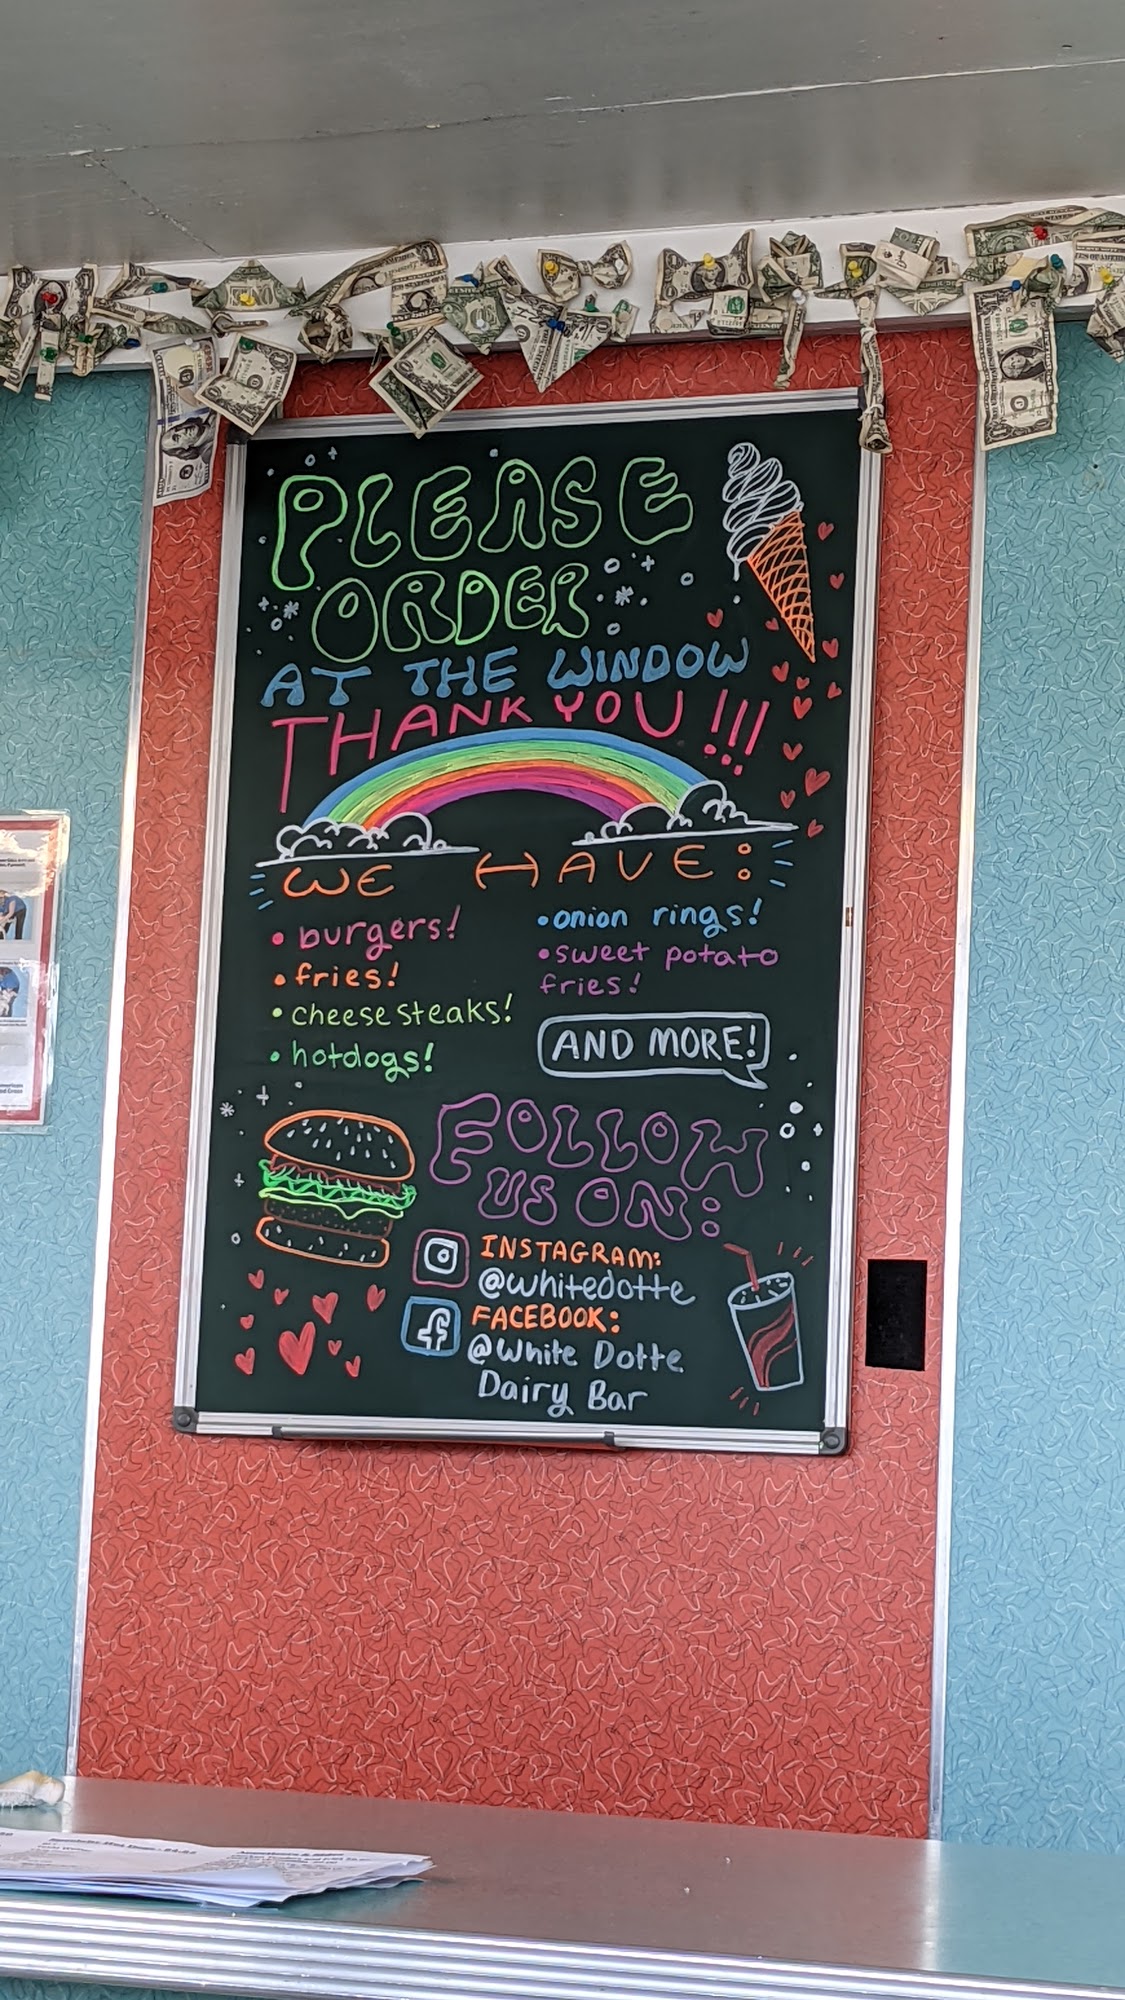 PLEASE
ORDER
AT THE WINDOW
THANK YOU!!!
WE HAVE:
• burgers!
• fries!
• cheese steaks!
• hotdogs!
• onion rings!
• sweet potato
fries!
AND MORE!
FOLLOW
US ON:
INSTAGRAM:
@whitedotte
FACEBOOK:
@White Dotte
Dairy Bar